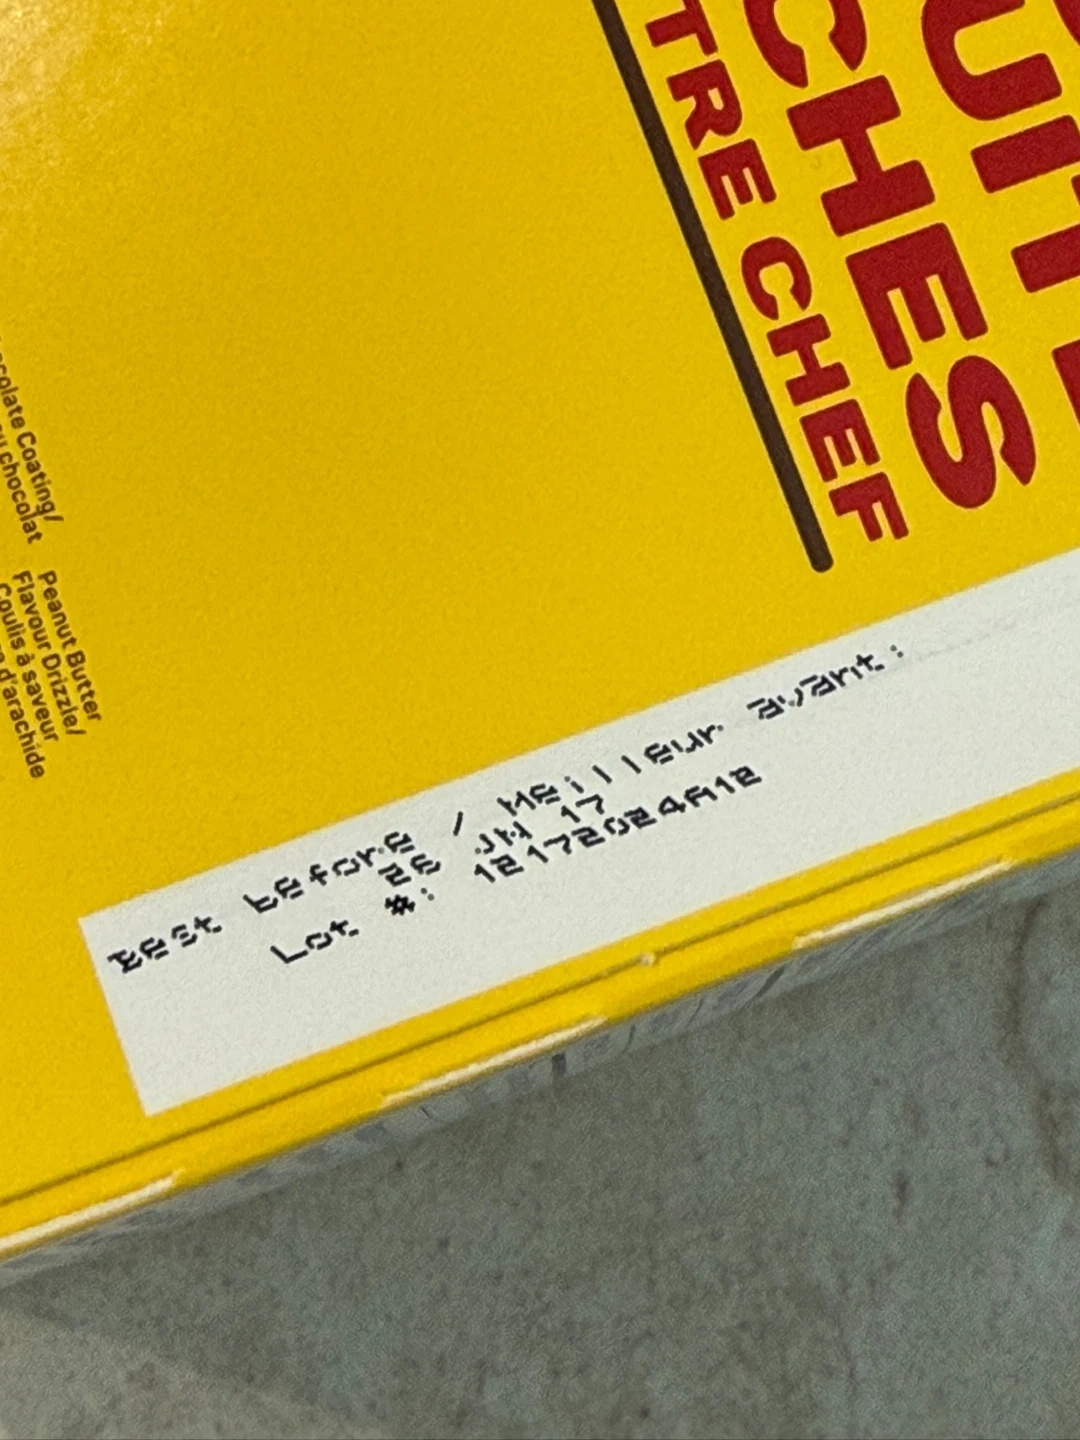 TRE CHEF
CHES
Coating/
chocolat
Peanut Butter
Flavour Drizzle/
Coulis à saveur
d'arachide
Best before / Meilleur avant:
26 JN 17
Lot #: 12172024A12